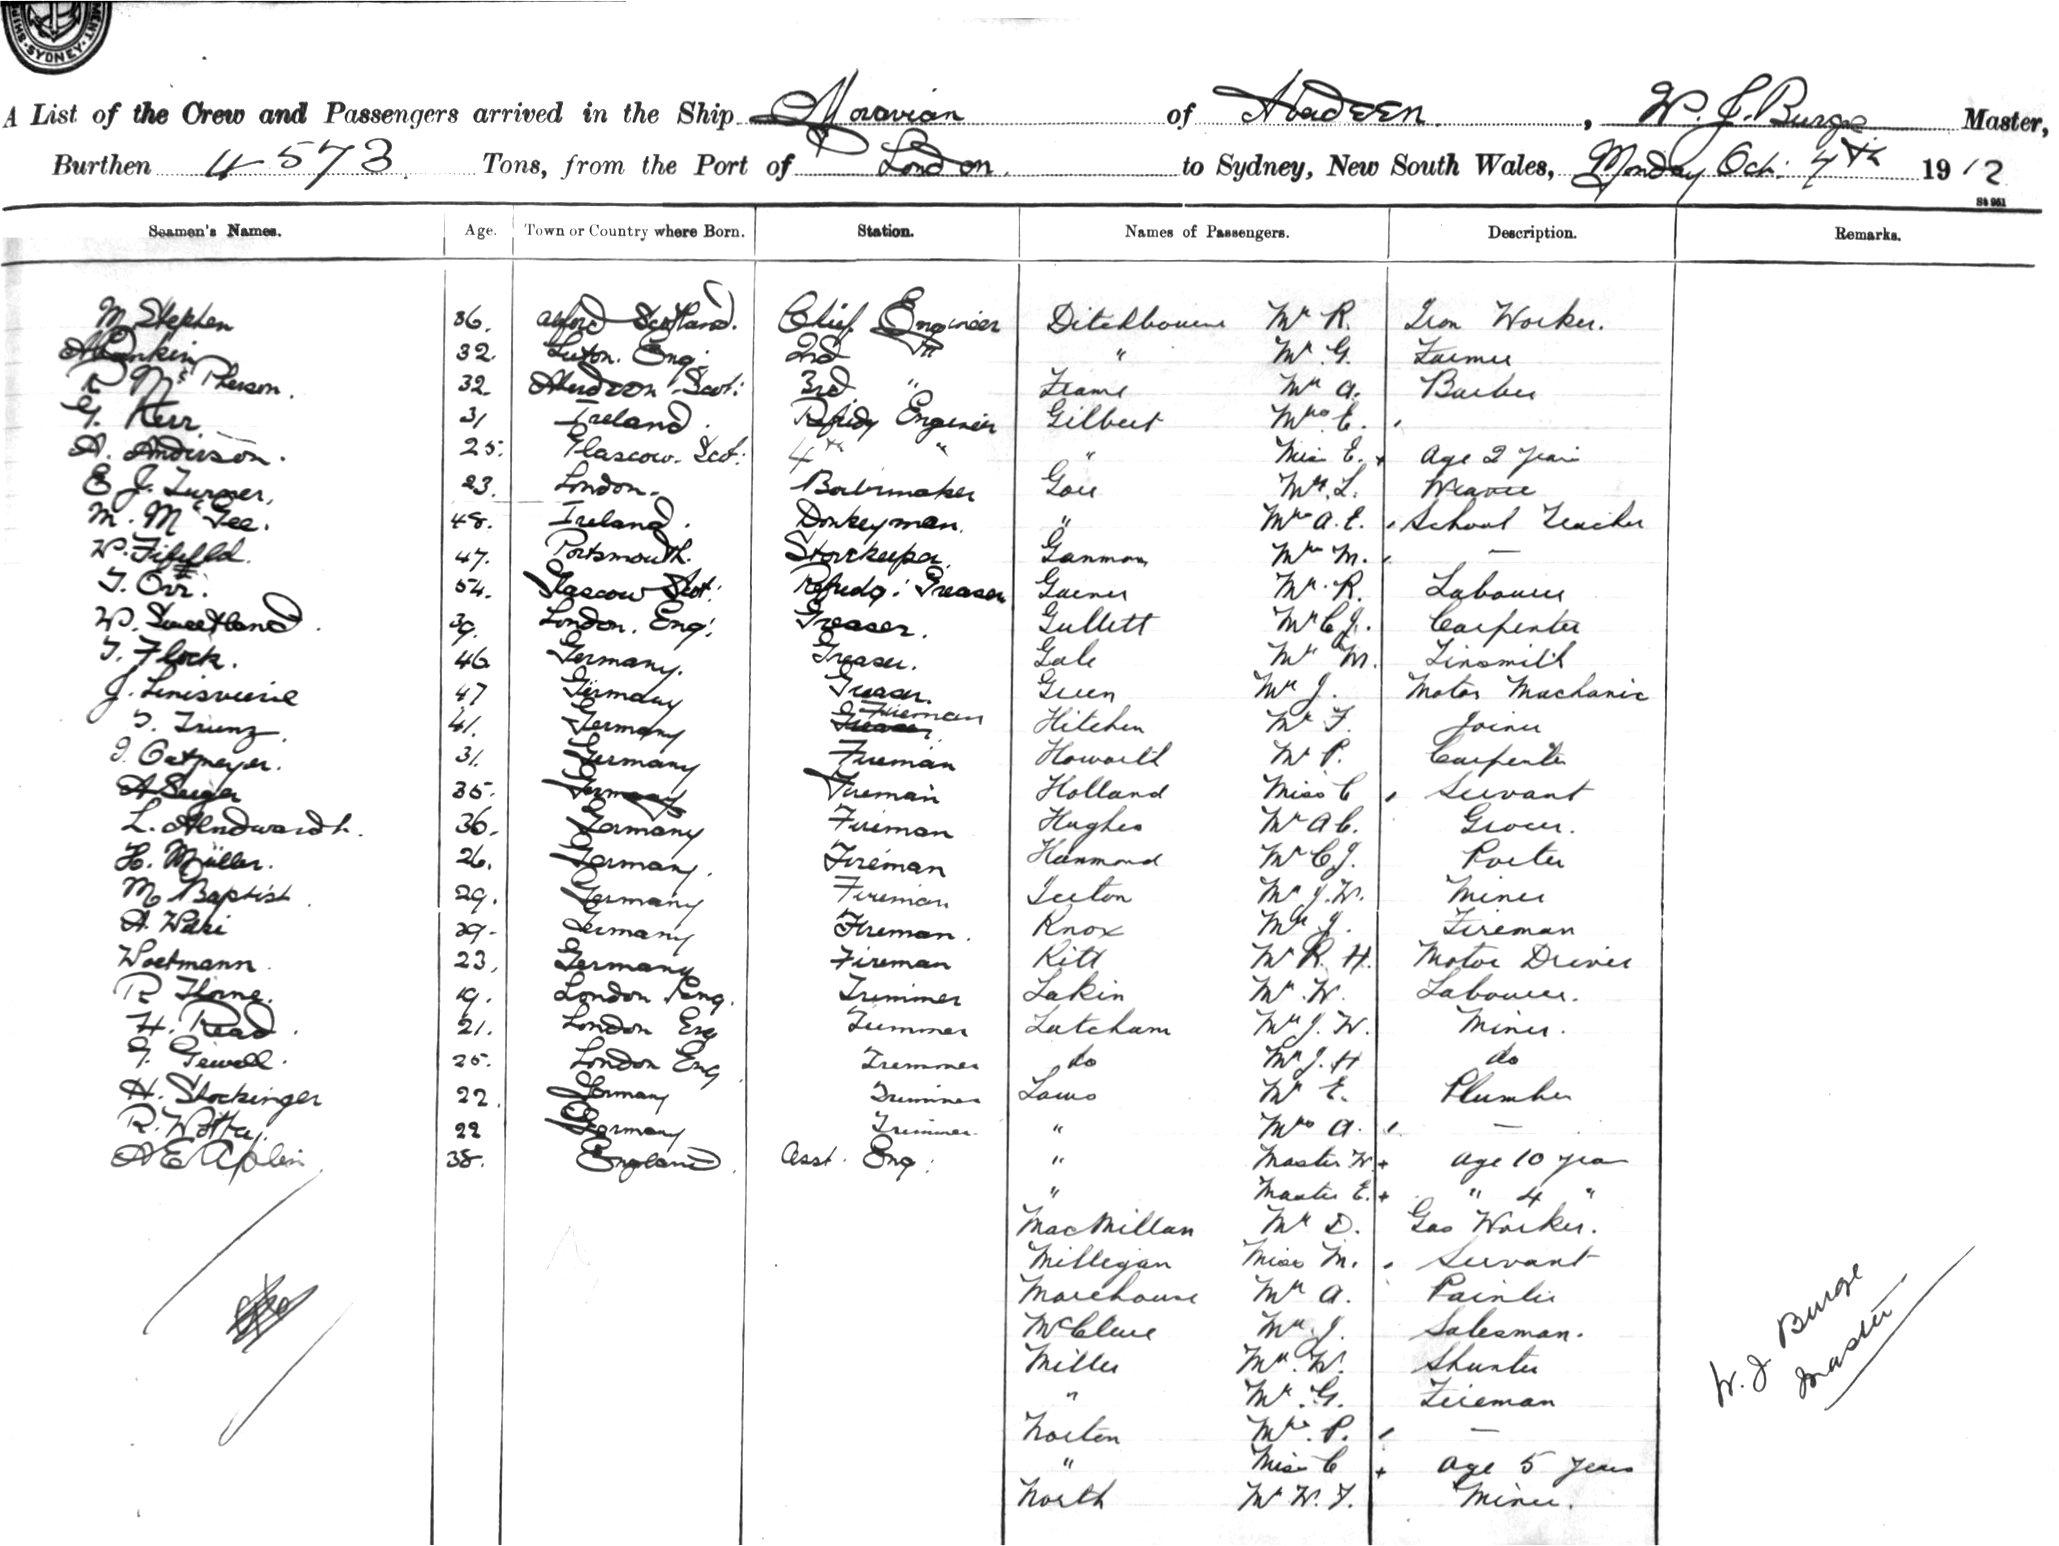 SYDNEY
A List of the Crew and Passengers arrived in the Ship Moravian of Aberdeen, W. J. Burge Master,
Burthen 4573 Tons, from the Port of London to Sydney, New South Wales, Monday Oct. 7th 1912
Seamen's Names. Age. Town or Country where Born. Station. Names of Passengers. Description. Remarks.
M Stephen 36. Alford Scotland. Chief Engineer Ditchbourne Mr R. Iron Worker.
32. Luton. Eng. 2nd " " Mr G. Farmer
R McPherson. 32 Aberdeen Scot: 3rd " Frame Mr A. Barber
G. Kerr 31 Ireland. Refridg Engineer Gilbert Mrs E.
A. Anderson. 25. Glascow. Scot: 4th " " Miss E. + Age 2 years
E J. Turner, 23. London. Boilermaker Gore Mr. L. Weaver
M. McGee. 48. Ireland. Donkeyman. " Mrs A. E. School Teacher
W. Fifield. 47. Portsmouth. Storekeeper. Ganmon Mrs M. —
T. Orr. 54. Glascow Scot: Refridg: Greaser Garner Mr. R. Labourer
W. Sweetland. 39. London. Eng: Greaser. Gullett Mr C J. Carpenter
T. Flock. 46 Germany. Greaser. Gale Mr M. Tinsmith
J. 47 Germany Greaser. Green Mr J. Motor Machanic
T. Trunz. 41. Germany Fireman Hitchen Mr F. Joiner
31. Germany Fireman Howorth Mr P. Carpenter
A Seiger 35. Germany Fireman Holland Miss C Servant
L. 36. Germany Fireman Hughes Mr A C. Grocer.
H. Müller. 26. Germany. Fireman Hammond Mr C J. Porter
M Baptist 29. Germany Fireman Mr J. W. Miner
A. 29. Germany Fireman. Knox Mr J. Fireman
Woetmann 23. Germany Fireman Kitt Mr R. H. Motor Driver
R Thorne. 19. London Eng. Trimmer Lakin Mr. W. Labourer.
H. Read. 21. London Eng Trimmer Latcham Mr J. W. Miner.
25. London Eng Trimmer do Mr J. H do
H. Stockinger 22. Germany Trimmer Laws Mr E. Plumber
R. 22 Germany Trimmer. " Mrs A. —
A E Aplin 38. England. Asst. Eng: " Master W. + age 10 years
" Master E. + " 4 "
MacMillan Mr D. Gas Worker.
Milligan Miss M. Servant
Morehouse Mr A. Painter
McClure Mr. J. Salesman.
Miller Mr. W. Shunter
" Mr. G. Fireman
Norton Mrs. P. —
" Miss C + age 5 years
North Mr W. T. Miner.
W. J Burge
Master